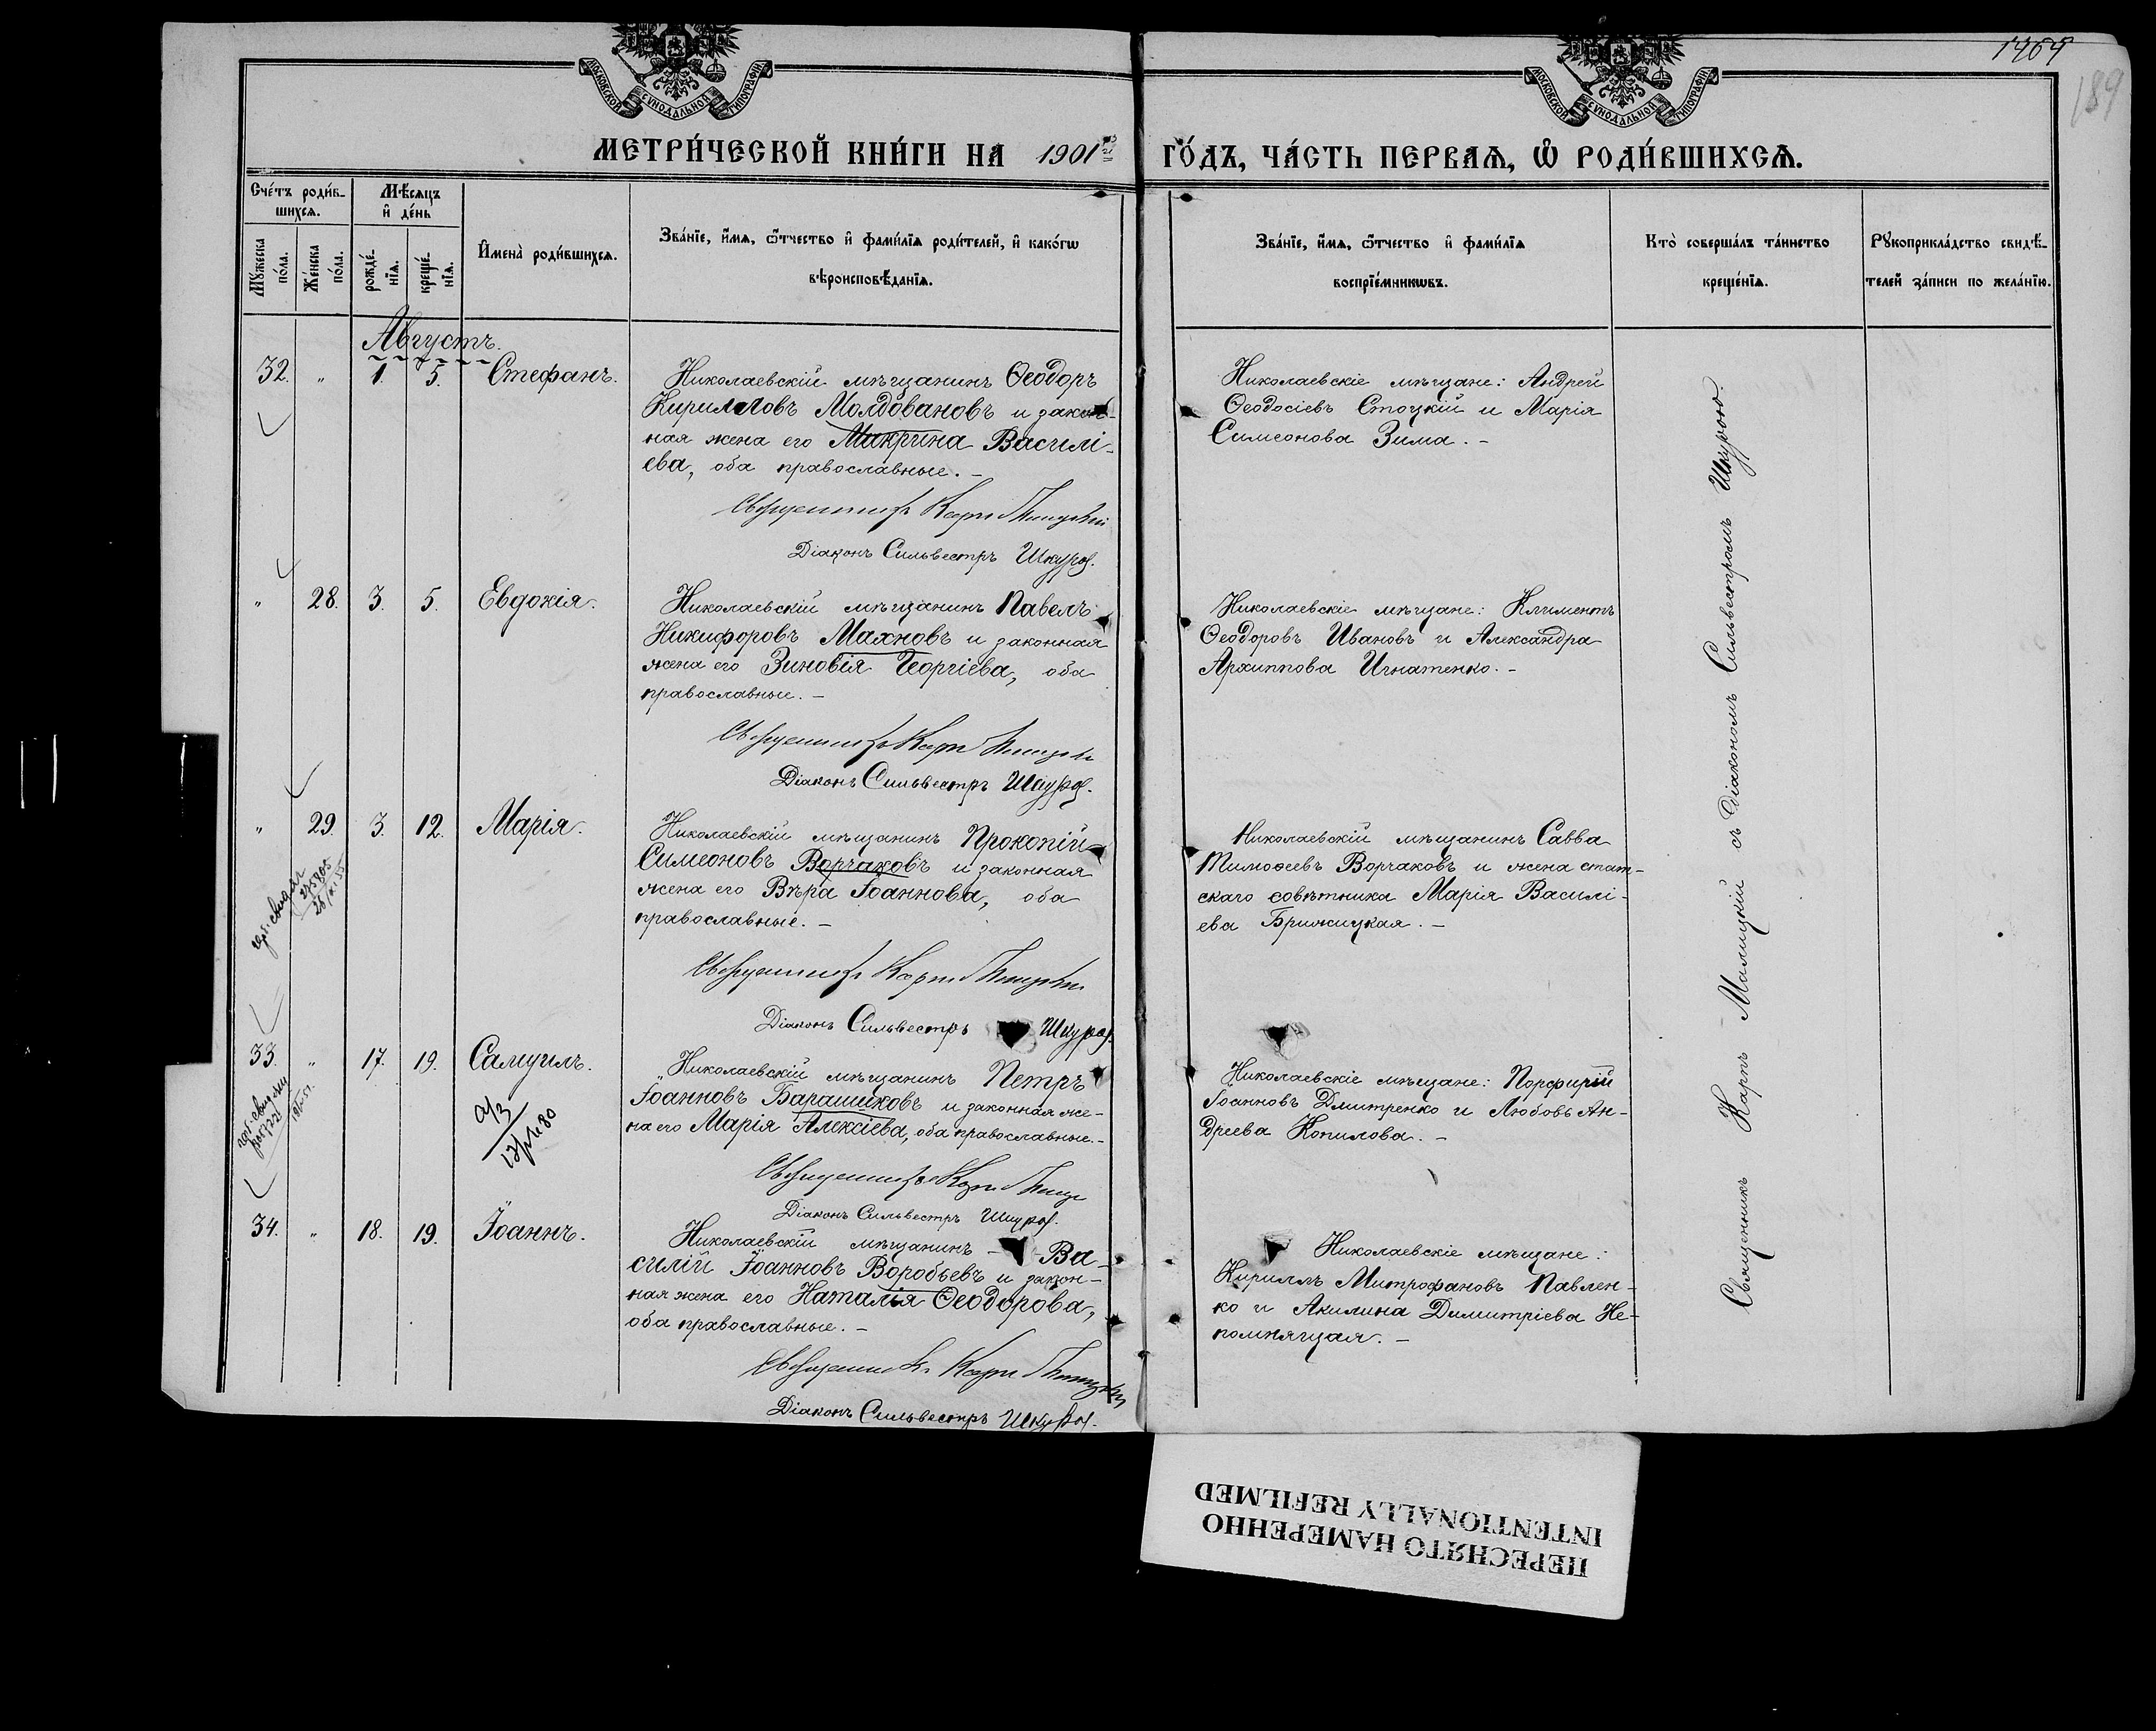 МОСКОВСКОЙ СѴНОДАЛЬНОЙ ТИПОГРАФІИ
МОСКОВСКОЙ СѴНОДАЛЬНОЙ ТИПОГРАФІИ
189
МЕТРИ́ЧЕСКОЙ КНИ́ГИ НА 1901 ГО́ДЪ, ЧА́СТЬ ПЕРВАѦ, Ѡ҆ РОДИ́ВШИХСѦ.
Сче́тъ роди́в-
шихсѧ.
Мꙋжеска
по́ла.
Же́нска
по́ла.
Мѣ́сѧцъ
и҆ де́нь
рожде́-
нїѧ.
креще́-
нїѧ.
И҆мена̀ роди́вшихсѧ.
Зва́нїе, и҆́мѧ, ѻ҆́тчество и҆ фами́лїѧ роди́телей, и҆ како́гѡ
вѣроисповѣ́данїѧ.
Зва́нїе, и҆́мѧ, ѻ҆́тчество и҆ фами́лїѧ
воспрїе́мникѡвъ.
Кто̀ соверша́лъ та́инство
креще́нїѧ.
Рꙋкоприкла́дство свидѣ́-
телей за́писи по жела́нїю.
Августъ.
32. " 1. 5. Стефанъ.
Николаевскій мѣщанинъ Ѳеодоръ
Кирилловъ Молдовановъ и закон-
ная жена его Макрина Василі-
ева, оба православные. -
Священникъ Карпъ
Діаконъ Сильвестръ Шкура.
Николаевскіе мѣщане: Андрей
Ѳеодосіевъ Стоцкій и Марія
Симеонова Зима. -
" 28. 3. 5. Евдокія.
Николаевскій мѣщанинъ Павелъ
Никифоровъ Махновъ и законная
жена его Зиновія Георгіева, оба
православные. -
Священникъ Карпъ
Діаконъ Сильвестръ Шкура.
Николаевскіе мѣщане: Климентъ
Ѳеодоровъ Ивановъ и Александра
Архиппова Игнатенко. -
" 29. 3. 12. Марія.
Николаевскій мѣщанинъ Прокопій
Симеоновъ Ворчаковъ и законная
жена его Вѣра Іоаннова, оба
православные. -
Священникъ Карпъ
Діаконъ Сильвестръ Шкура.
Николаевскій мѣщанинъ Савва
Тимоѳеевъ Ворчаковъ и жена стат-
скаго совѣтника Марія Василі-
ева Брижицкая. -
33. " 17. 19. Самуилъ.
Николаевскій мѣщанинъ Петръ
Іоанновъ Барашиковъ и законная же-
на его Марія Алексіева, оба православные. -
Священникъ Карпъ
Діаконъ Сильвестръ Шкура.
Николаевскіе мѣщане: Порфирій
Іоанновъ Дмитренко и Любовь Ан-
дреева Копилова. -
34. " 18. 19. Іоаннъ.
Николаевскій мѣщанинъ - Ва-
силій Іоанновъ Воробьевъ и закон-
ная жена его Наталія Ѳеодорова,
оба православные. -
Священникъ Карпъ
Діаконъ Сильвестръ Шкура.
Николаевскіе мѣщане:
Кириллъ Митрофановъ Павлен-
ко и Акилина Димитріева Не-
помнящая. -
Священникъ Карпъ Малицкій съ Діакономъ Сильвестромъ Шкурою.
ПЕРЕСНЯТО НАМЕРЕННО
INTENTIONALLY REFILMED